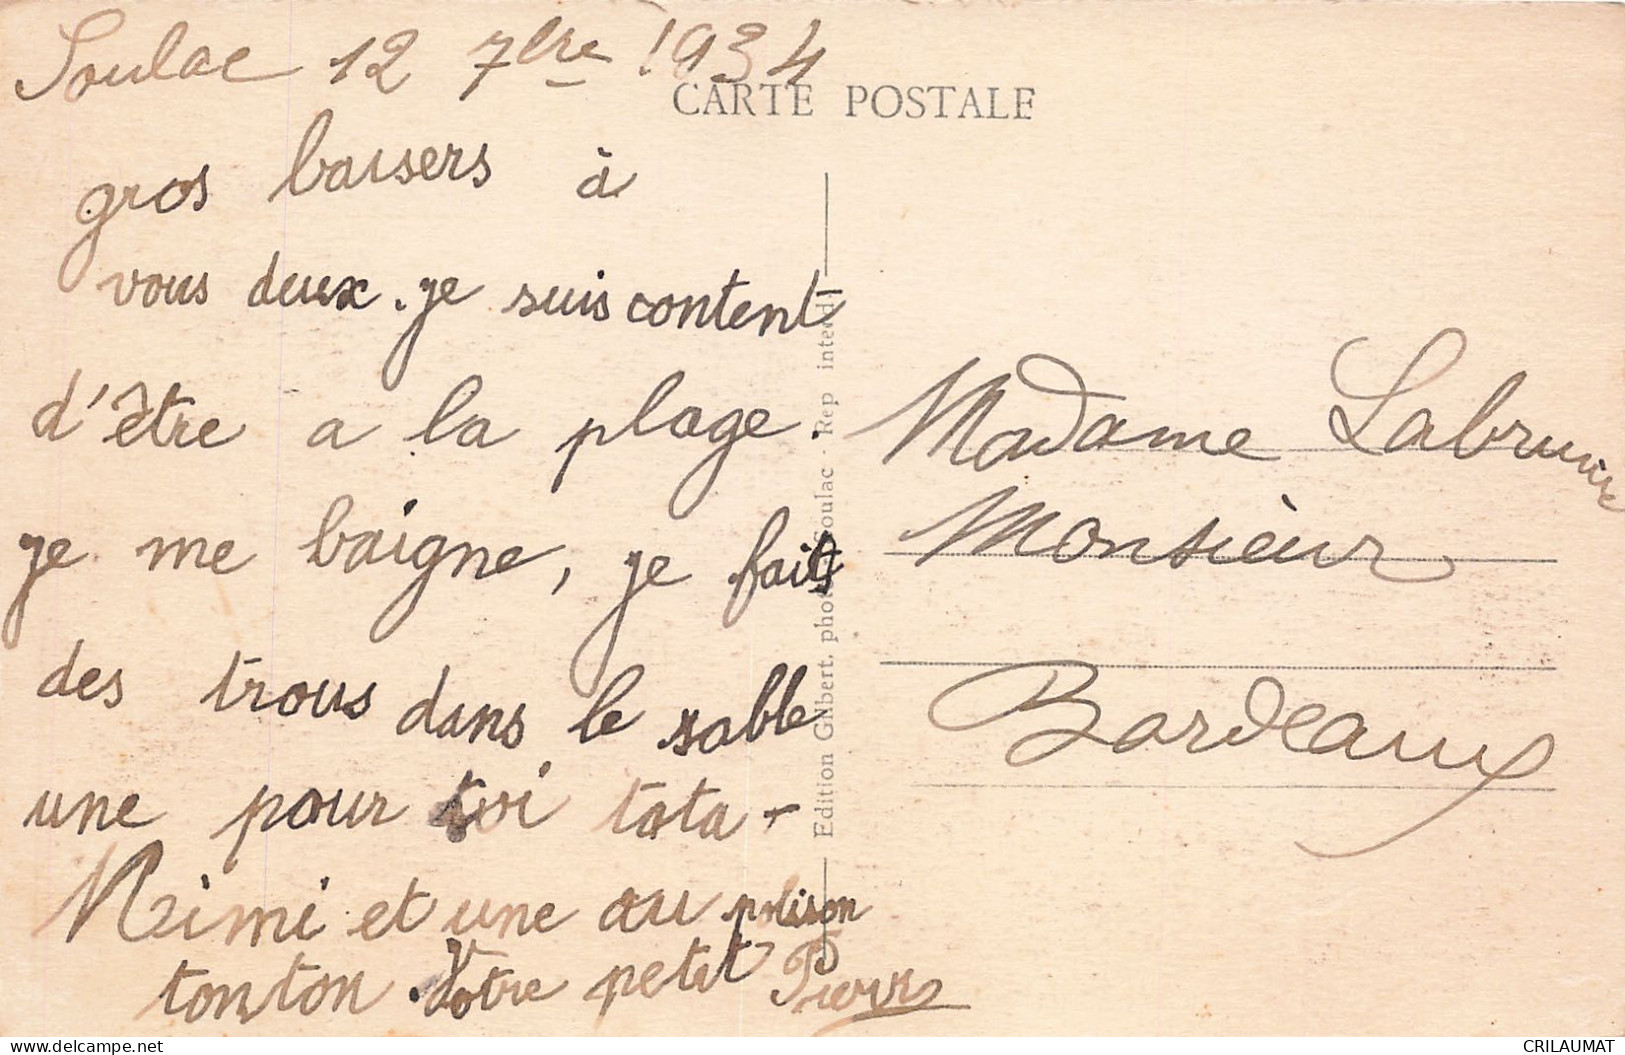 Soulac 12 7bre 1934
CARTE POSTALE
gros baisers à
vous deux. je suis content
d'être a la plage.
je me baigne, je fais
des trous dans le sable
une pour toi tata-
Mimi et une au polison
tonton. Votre petit Pierre
Edition Gilbert, photo Soulac - Rep interdi
Madame
Monsièur
Bordeaux
delcampe.net
CRILAUMAT